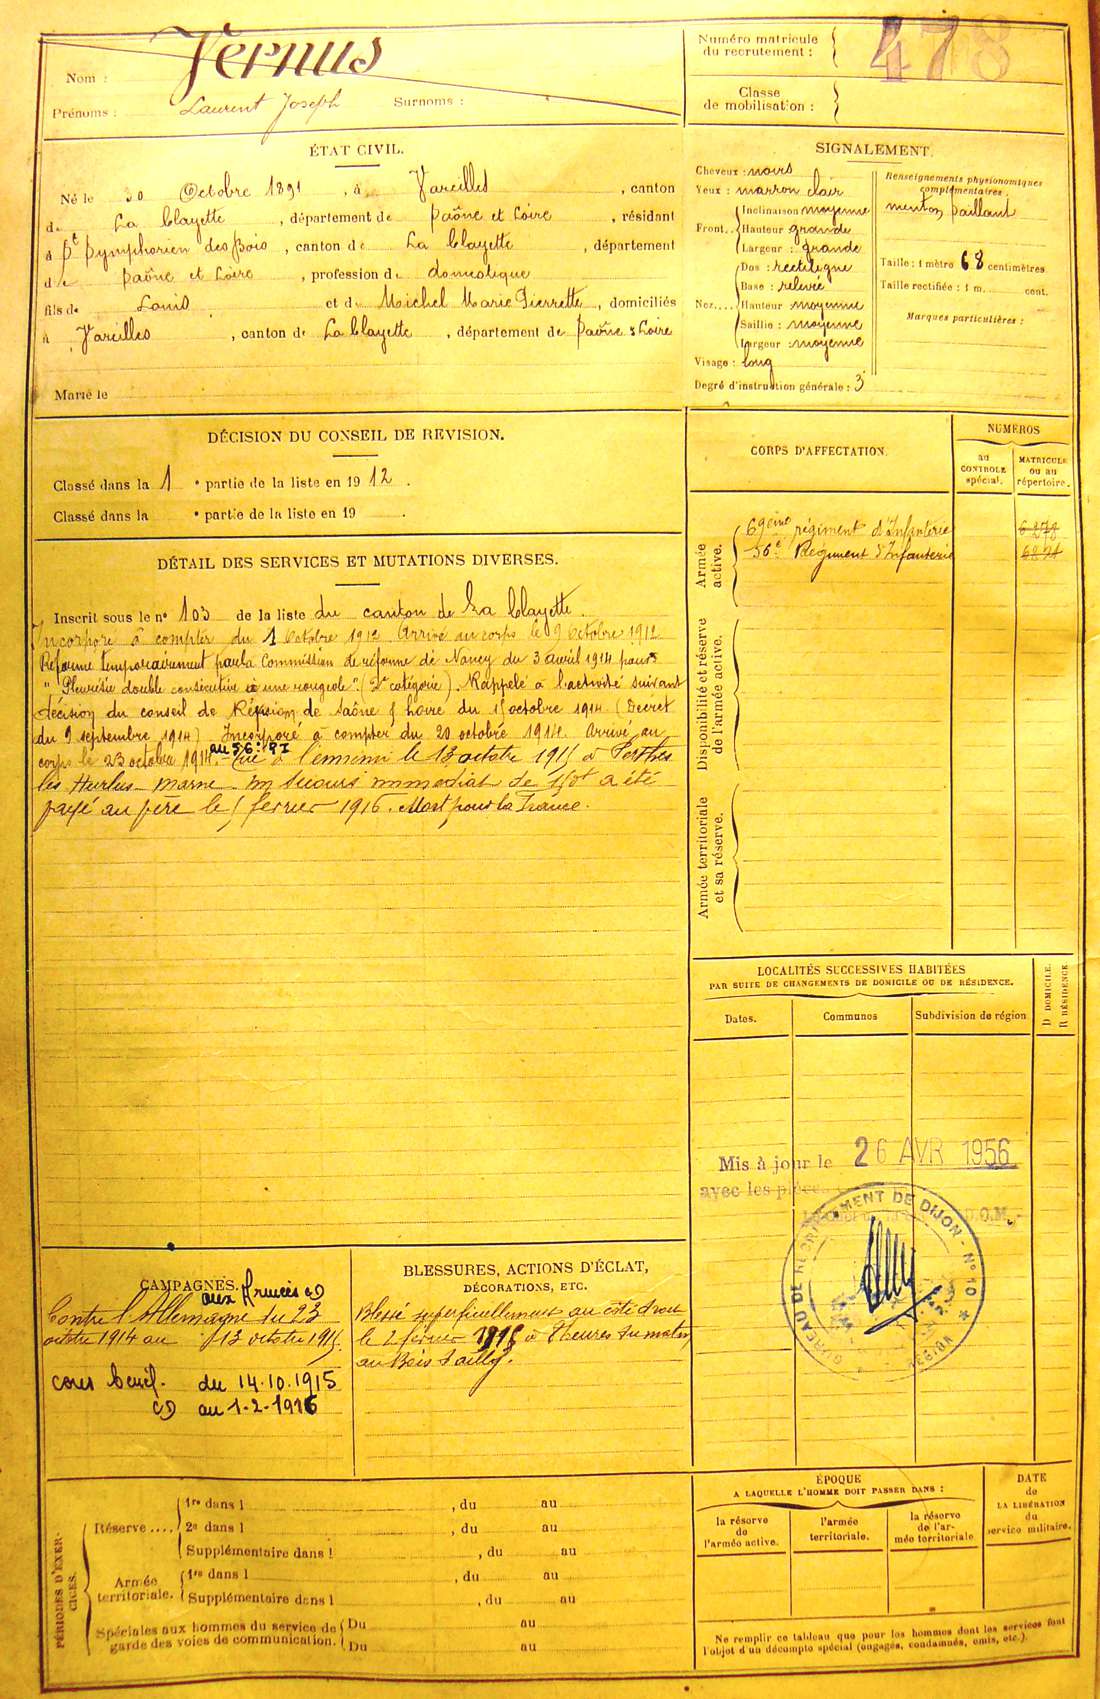 Nom : Vernus
Prénoms : Laurent Joseph Surnoms :
Numéro matricule
du recrutement : 478
Classe
de mobilisation :
ÉTAT CIVIL.
Né le 30 Octobre 1891, à Vareilles, canton
de La Clayette, département de Saône et Loire, résidant
à St Symphorien des Bois, canton de La Clayette, département
de Saône et Loire, profession de domestique
fils de Louis et de Michel Marie Pierrette, domiciliés
à Vareilles, canton de La Clayette, département de Saône & Loire
Marié le
SIGNALEMENT.
Cheveux : noirs
Yeux : marron clair
Front. Inclinaison moyenne
Hauteur grande
Largeur : grande
Nez. Dos : rectiligne
Base : relevée
Hauteur moyenne
Saillie : moyenne
Largeur : moyenne
Visage : long
Degré d'instruction générale : 3
Renseignements physionomiques
complémentaires :
menton saillant
Taille : 1 mètre 68 centimètres
Taille rectifiée : 1 m. cent.
Marques particulières :
DÉCISION DU CONSEIL DE REVISION.
Classé dans la 1 e partie de la liste en 1912.
Classé dans la e partie de la liste en 19 .
DÉTAIL DES SERVICES ET MUTATIONS DIVERSES.
Inscrit sous le n° 103 de la liste du canton de La Clayette.
Incorporé à compter du 1 Octobre 1912. Arrivé au corps le 9 Octobre 1912
Réformé temporairement par la Commission de réforme de Nancy du 3 avril 1914 pour
" Pleurésie double consécutive à une rougeole" (2e catégorie). Rappelé à l'activité suivant
décision du conseil de Révision de Saône & Loire du 15 octobre 1914. (Décret
du 9 septembre 1914) Incorporé à compter du 20 octobre 1914. Arrivé au
corps le 23 octobre 1914 au 56e RI - Tué à l'ennemi le 13 octobre 1915 à Perthes
les Hurlus - Marne - Un secours immediat de 150f a été
payé au père le 5 février 1916. Mort pour la France.
CORPS D'AFFECTATION.
NUMÉROS
au
CONTROLE
spécial.
MATRICULE
ou au
répertoire.
Armée
active.
69eme régiment d'Infanterie 6278
56e Régiment d'Infanterie
Disponibilité et réserve
de l'armée active.
Armée territoriale
et sa réserve.
LOCALITÉS SUCCESSIVES HABITÉES
PAR SUITE DE CHANGEMENTS DE DOMICILE OU DE RÉSIDENCE.
Dates.
Communes
Subdivision de région
D DOMICILE.
R RÉSIDENCE
Mis à jour le 26 AVR 1956
avec les pièces
BUREAU DE RECRUTEMENT DE DIJON - N° 10 * RÉGION
CAMPAGNES.
aux Armées
Contre l'Allemagne du 23
octobre 1914 au 13 octobre 1915.
cours bénéf. du 14.10.1915
au 1-2-1916
BLESSURES, ACTIONS D'ÉCLAT,
DÉCORATIONS, ETC.
Blessé superficiellement au côté droit
le 2 février 1915 à 8 heures du matin
au Bois d'ailly.
PÉRIODES D'EXERCICES.
Réserve .... 1re dans l , du au
2e dans l , du au
Supplémentaire dans l , du au
Armée
territoriale. 1re dans l , du au
Supplémentaire dans l , du au
Spéciales aux hommes du service de
garde des voies de communication. Du au
Du au
ÉPOQUE
A LAQUELLE L'HOMME DOIT PASSER DANS :
la réserve
de
l'armée active.
l'armée
territoriale.
la réserve
de l'ar-
mée territoriale
DATE
de
LA LIBÉRATION
du
service militaire.
Ne remplir ce tableau que pour les hommes dont les services font
l'objet d'un décompte spécial (engagés, condamnés, omis, etc.).